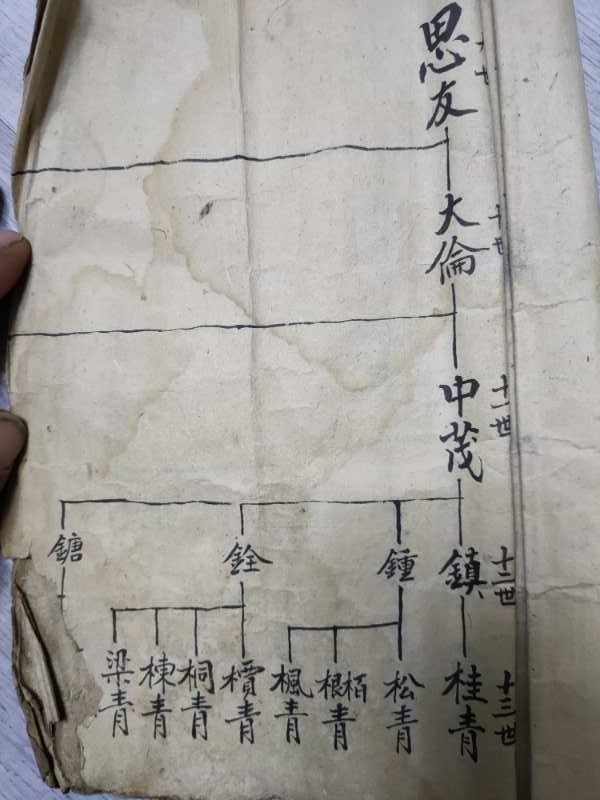 九世
思友
十世
大倫
十一世
中茂
十二世
鎮
鍾
銓
鎕
十三世
桂青
松青
根栢青
楓青
檟青
桐青
棟青
梁青